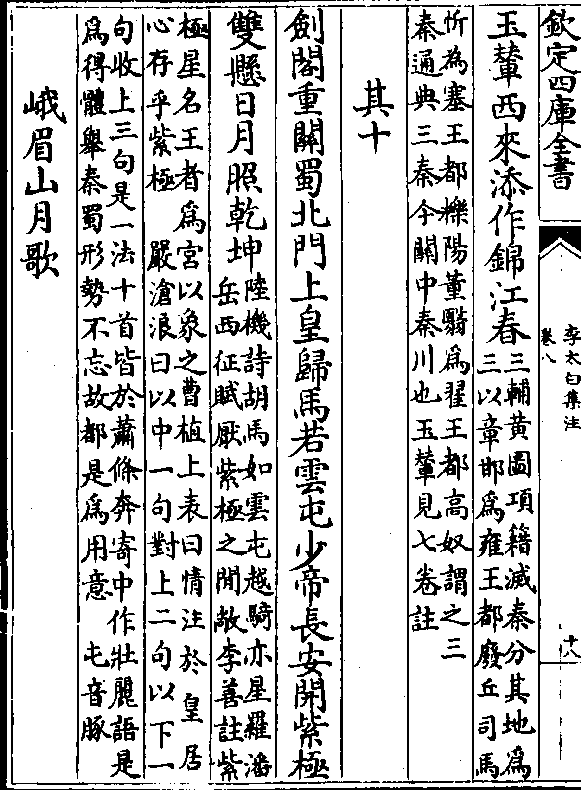 欽定四庫全書
李太白集注
卷八
十八
玉輦西來添作錦江春三輔黃圖項籍滅秦分其地為
三以章邯為雍王都廢丘司馬
忻為塞王都櫟陽董翳為翟王都高奴謂之三
秦通典三秦今關中秦川也玉輦見七卷註
其十
劍閣重關蜀北門上皇歸馬若雲屯少帝長安開紫極
雙懸日月照乾坤陸機詩胡馬如雲屯越騎亦星羅潘
岳西征賦厭紫極之閒敞李善註紫
極星名王者為宮以象之曹植上表曰情注於皇居
心存乎紫極 嚴滄浪曰以中一句對上二句以下一
句收上三句是一法十首皆於蕭條奔寄中作壯麗語是
為得體舉秦蜀形勢不忘故都是為用意 屯音豚
峨眉山月歌